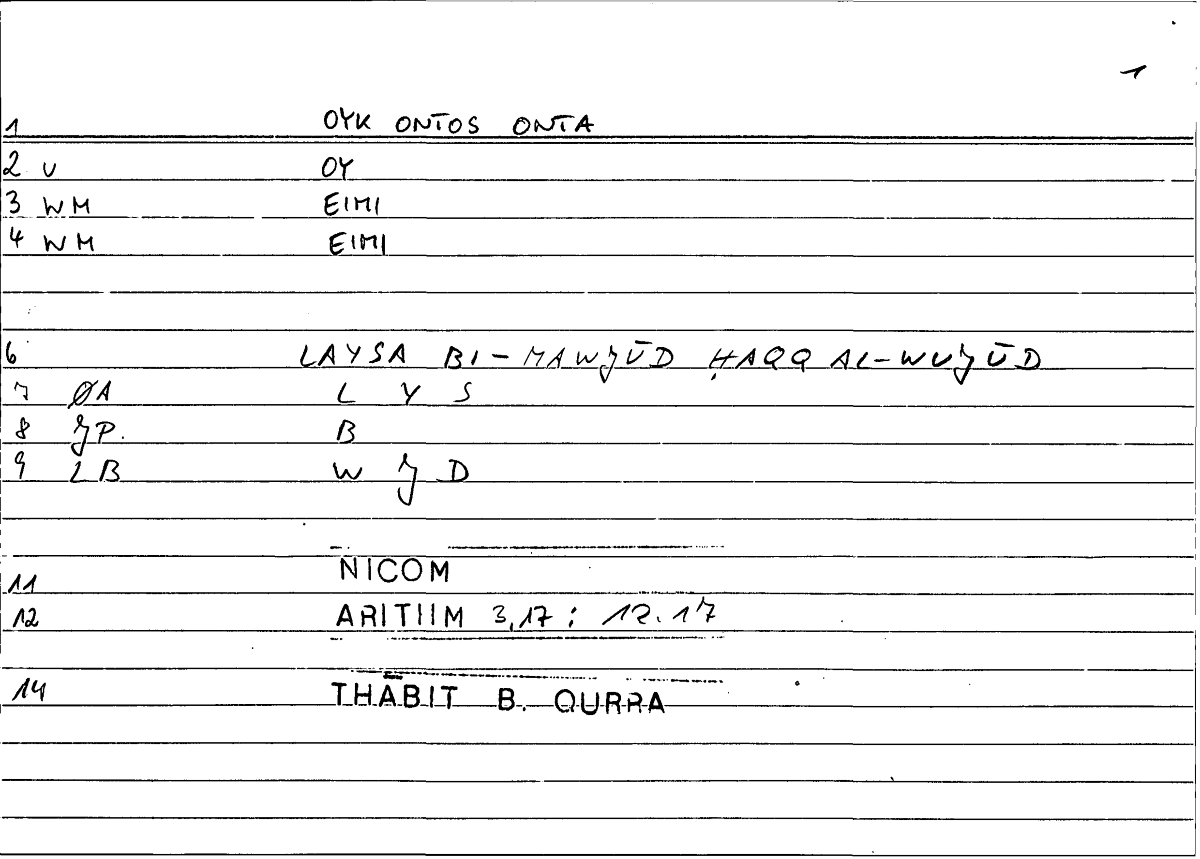 1
1 OYK ONTOS ONTA
2 U OY
3 WM EIMI
4 WM EIMI
6 LAYSA BI-MAWJŪD ḤAQQ AL-WUJŪD
7 ØA L Y S
8 JP. B
9 LB W J D
11 NICOM
12 ARITHM 3,17 : 12.17
14 THĀBIT B. QURRA